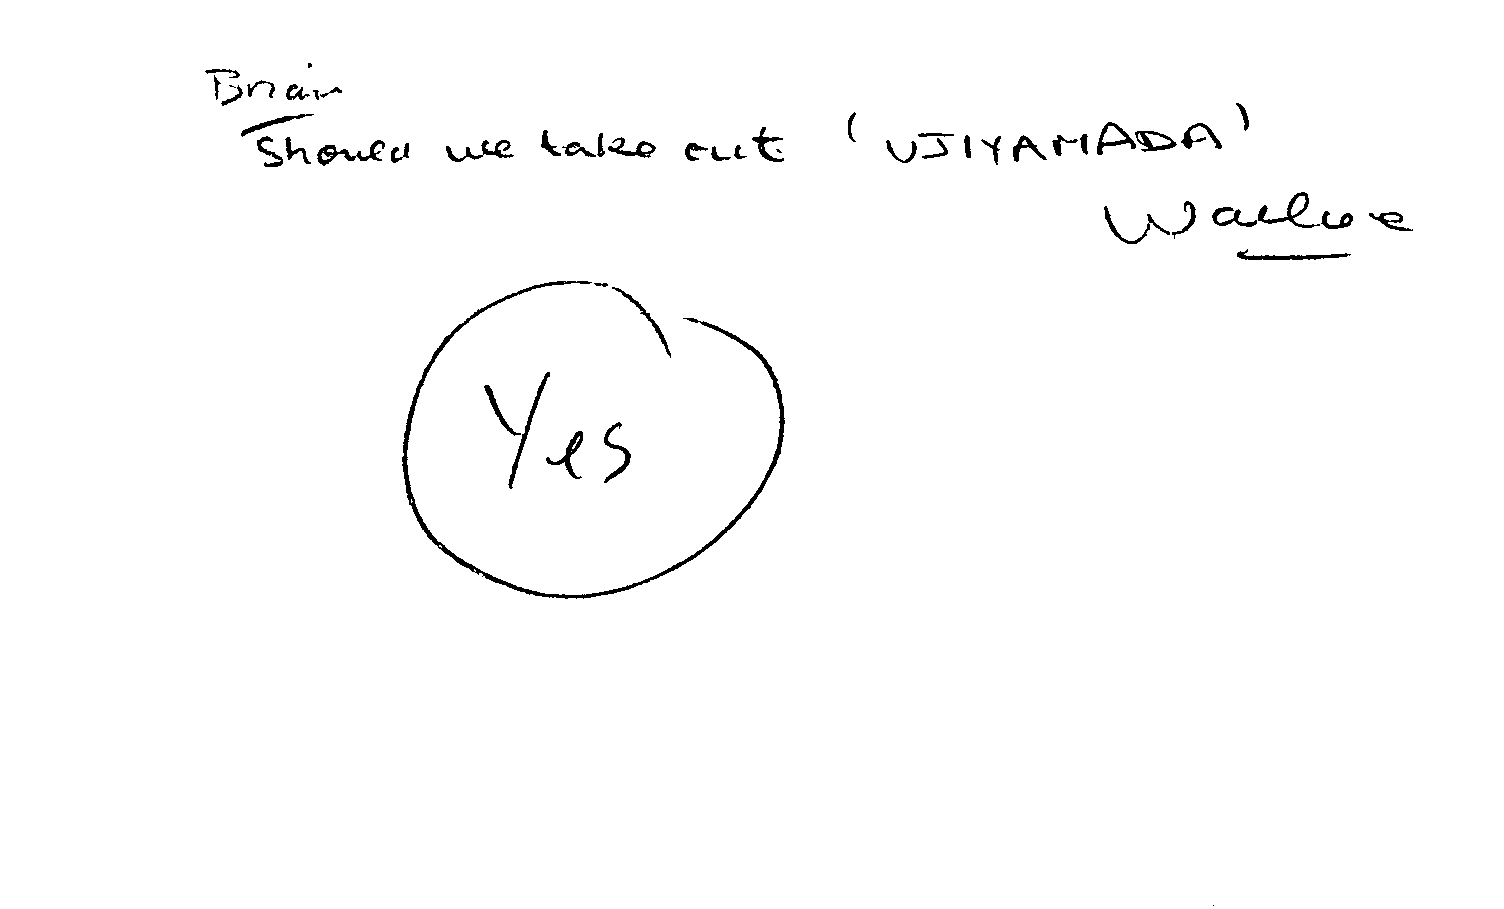 Brian
Should we take out 'UJIYAMADA'
Wallace
Yes